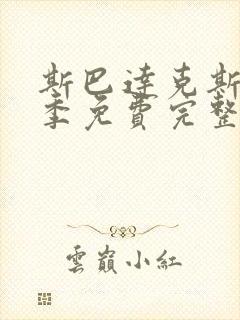 斯巴达克斯
季免費完整
雲巔小紅